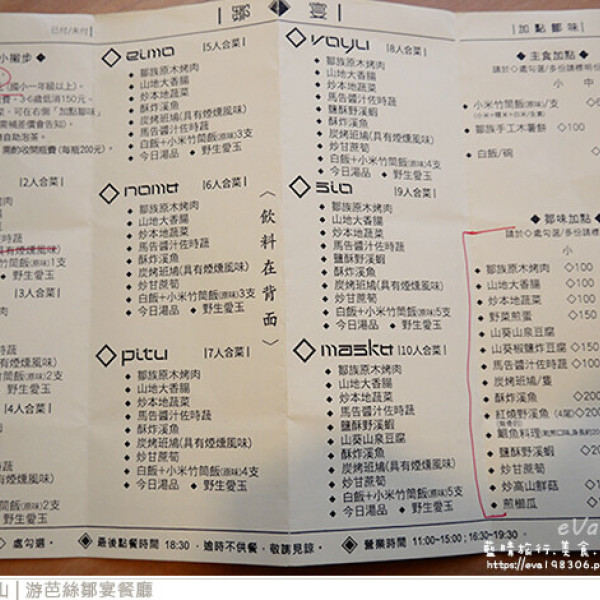 已付/未付
小撇步 ◆
(國小一年級以上)。
費，3-6歲低消150元。
菜，可在右側「加點鄒味」
需補差價會告知)。
請自助泡茶。
需酌收開瓶費(每瓶200元)。
|2人合菜|
野生愛玉
|3人合菜|
野生愛玉
|4人合菜|
野生愛玉
處勾選。
| 鄒 宴 |
◇ eimo |5人合菜|
◆ 鄒族原木烤肉
◆ 山地大香腸
◆ 炒本地蔬菜
◆ 酥炸溪魚
◆ 炭烤班鳩(具有煙燻風味)
◆ 馬告醬汁佐時蔬
◆ 白飯+小米竹筒飯(原味)3支
◆ 今日湯品 ◆ 野生愛玉
◇ nomo |6人合菜|
◆ 鄒族原木烤肉
◆ 山地大香腸
◆ 炒本地蔬菜
◆ 馬告醬汁佐時蔬
◆ 酥炸溪魚
◆ 炭烤班鳩(具有煙燻風味)
◆ 炒甘蔗筍
◆ 白飯+小米竹筒飯(原味)3支
◆ 今日湯品 ◆ 野生愛玉
◇ pitu |7人合菜|
◆ 鄒族原木烤肉
◆ 山地大香腸
◆ 炒本地蔬菜
◆ 馬告醬汁佐時蔬
◆ 酥炸溪魚
◆ 炭烤班鳩(具有煙燻風味)
◆ 炒甘蔗筍
◆ 白飯+小米竹筒飯(原味)4支
◆ 今日湯品 ◆ 野生愛玉
〈飲料在背面〉
◇ voyu |8人合菜|
◆ 鄒族原木烤肉
◆ 山地大香腸
◆ 炒本地蔬菜
◆ 酥炸溪魚
◆ 炭烤班鳩(具有煙燻風味)
◆ 馬告醬汁佐時蔬
◆ 炒甘蔗筍
◆ 白飯+小米竹筒飯(原味)4支
◆ 今日湯品 ◆ 野生愛玉
◇ sio |9人合菜|
◆ 鄒族原木烤肉
◆ 山地大香腸
◆ 炒本地蔬菜
◆ 馬告醬汁佐時蔬
◆ 鹽酥野溪蝦
◆ 酥炸溪魚
◆ 炭烤班鳩(具有煙燻風味)
◆ 炒甘蔗筍
◆ 白飯+小米竹筒飯(原味)5支
◆ 今日湯品 ◆ 野生愛玉
◇ masko |10人合菜|
◆ 鄒族原木烤肉
◆ 山地大香腸
◆ 炒本地蔬菜
◆ 馬告醬汁佐時蔬
◆ 鹽酥野溪蝦
◆ 山葵山泉豆腐
◆ 酥炸溪魚
◆ 炭烤班鳩(具有煙燻風味)
◆ 炒甘蔗筍
◆ 白飯+小米竹筒飯(原味)5支
◆ 今日湯品 ◆ 野生愛玉
|加點鄒味|
◆ 主食加點 ◆
請於◇處勾選/多份請標明份
小 中
◆ 小米竹筒飯(原味)/支
(小米+糯米+白米/全素)
◆ 鄒族手工木薯餅 ◇100
◆ 白飯/碗
◆ 鄒味加點 ◆
請於◇處勾選/多份請標
小
◆ 鄒族原木烤肉 ◇100
◆ 山地大香腸 ◇100
◆ 炒本地蔬菜 ◇100
◆ 野菜煎蛋 ◇150
◆ 山葵山泉豆腐
◆ 山葵椒鹽炸豆腐 ◇150
◆ 馬告醬汁佐時蔬 ◇100
◆ 炭烤班鳩/隻
◆ 酥炸溪魚 ◇200
◆ 紅燒野溪魚(4尾) ◇200
◆ 鯝魚料理
◆ 鹽酥野溪蝦 ◇20
◆ 炒甘蔗筍
◆ 炒高山鮮菇
◆ 煎櫛瓜
◆ 最後點餐時間 18:30，逾時不供餐，敬請見諒。 ◆ 營業時間 11:00~15:00；16:30~19:30。
eVa
藍晴旅行.美食
https://eva198306.p
山 | 游芭絲鄒宴餐廳